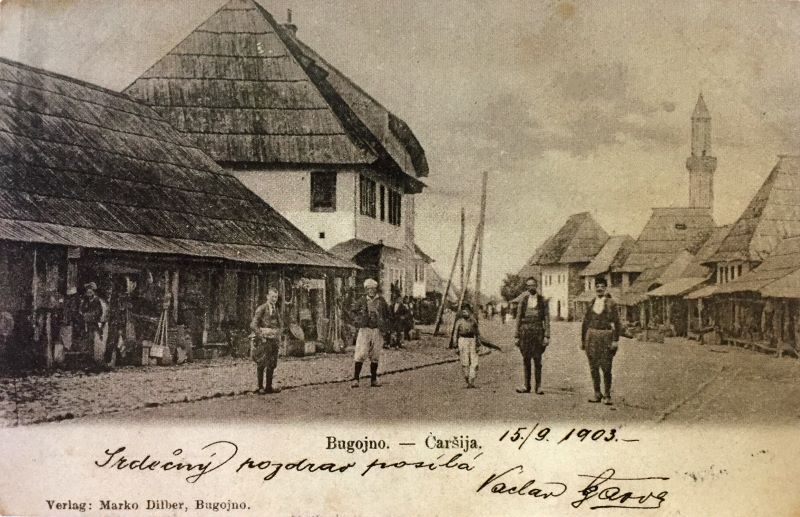 Bugojno. — Čaršija. 15/9. 1903.—
Srdečný pozdrav posílá
Vaclav
Verlag: Marko Dilber, Bugojno.